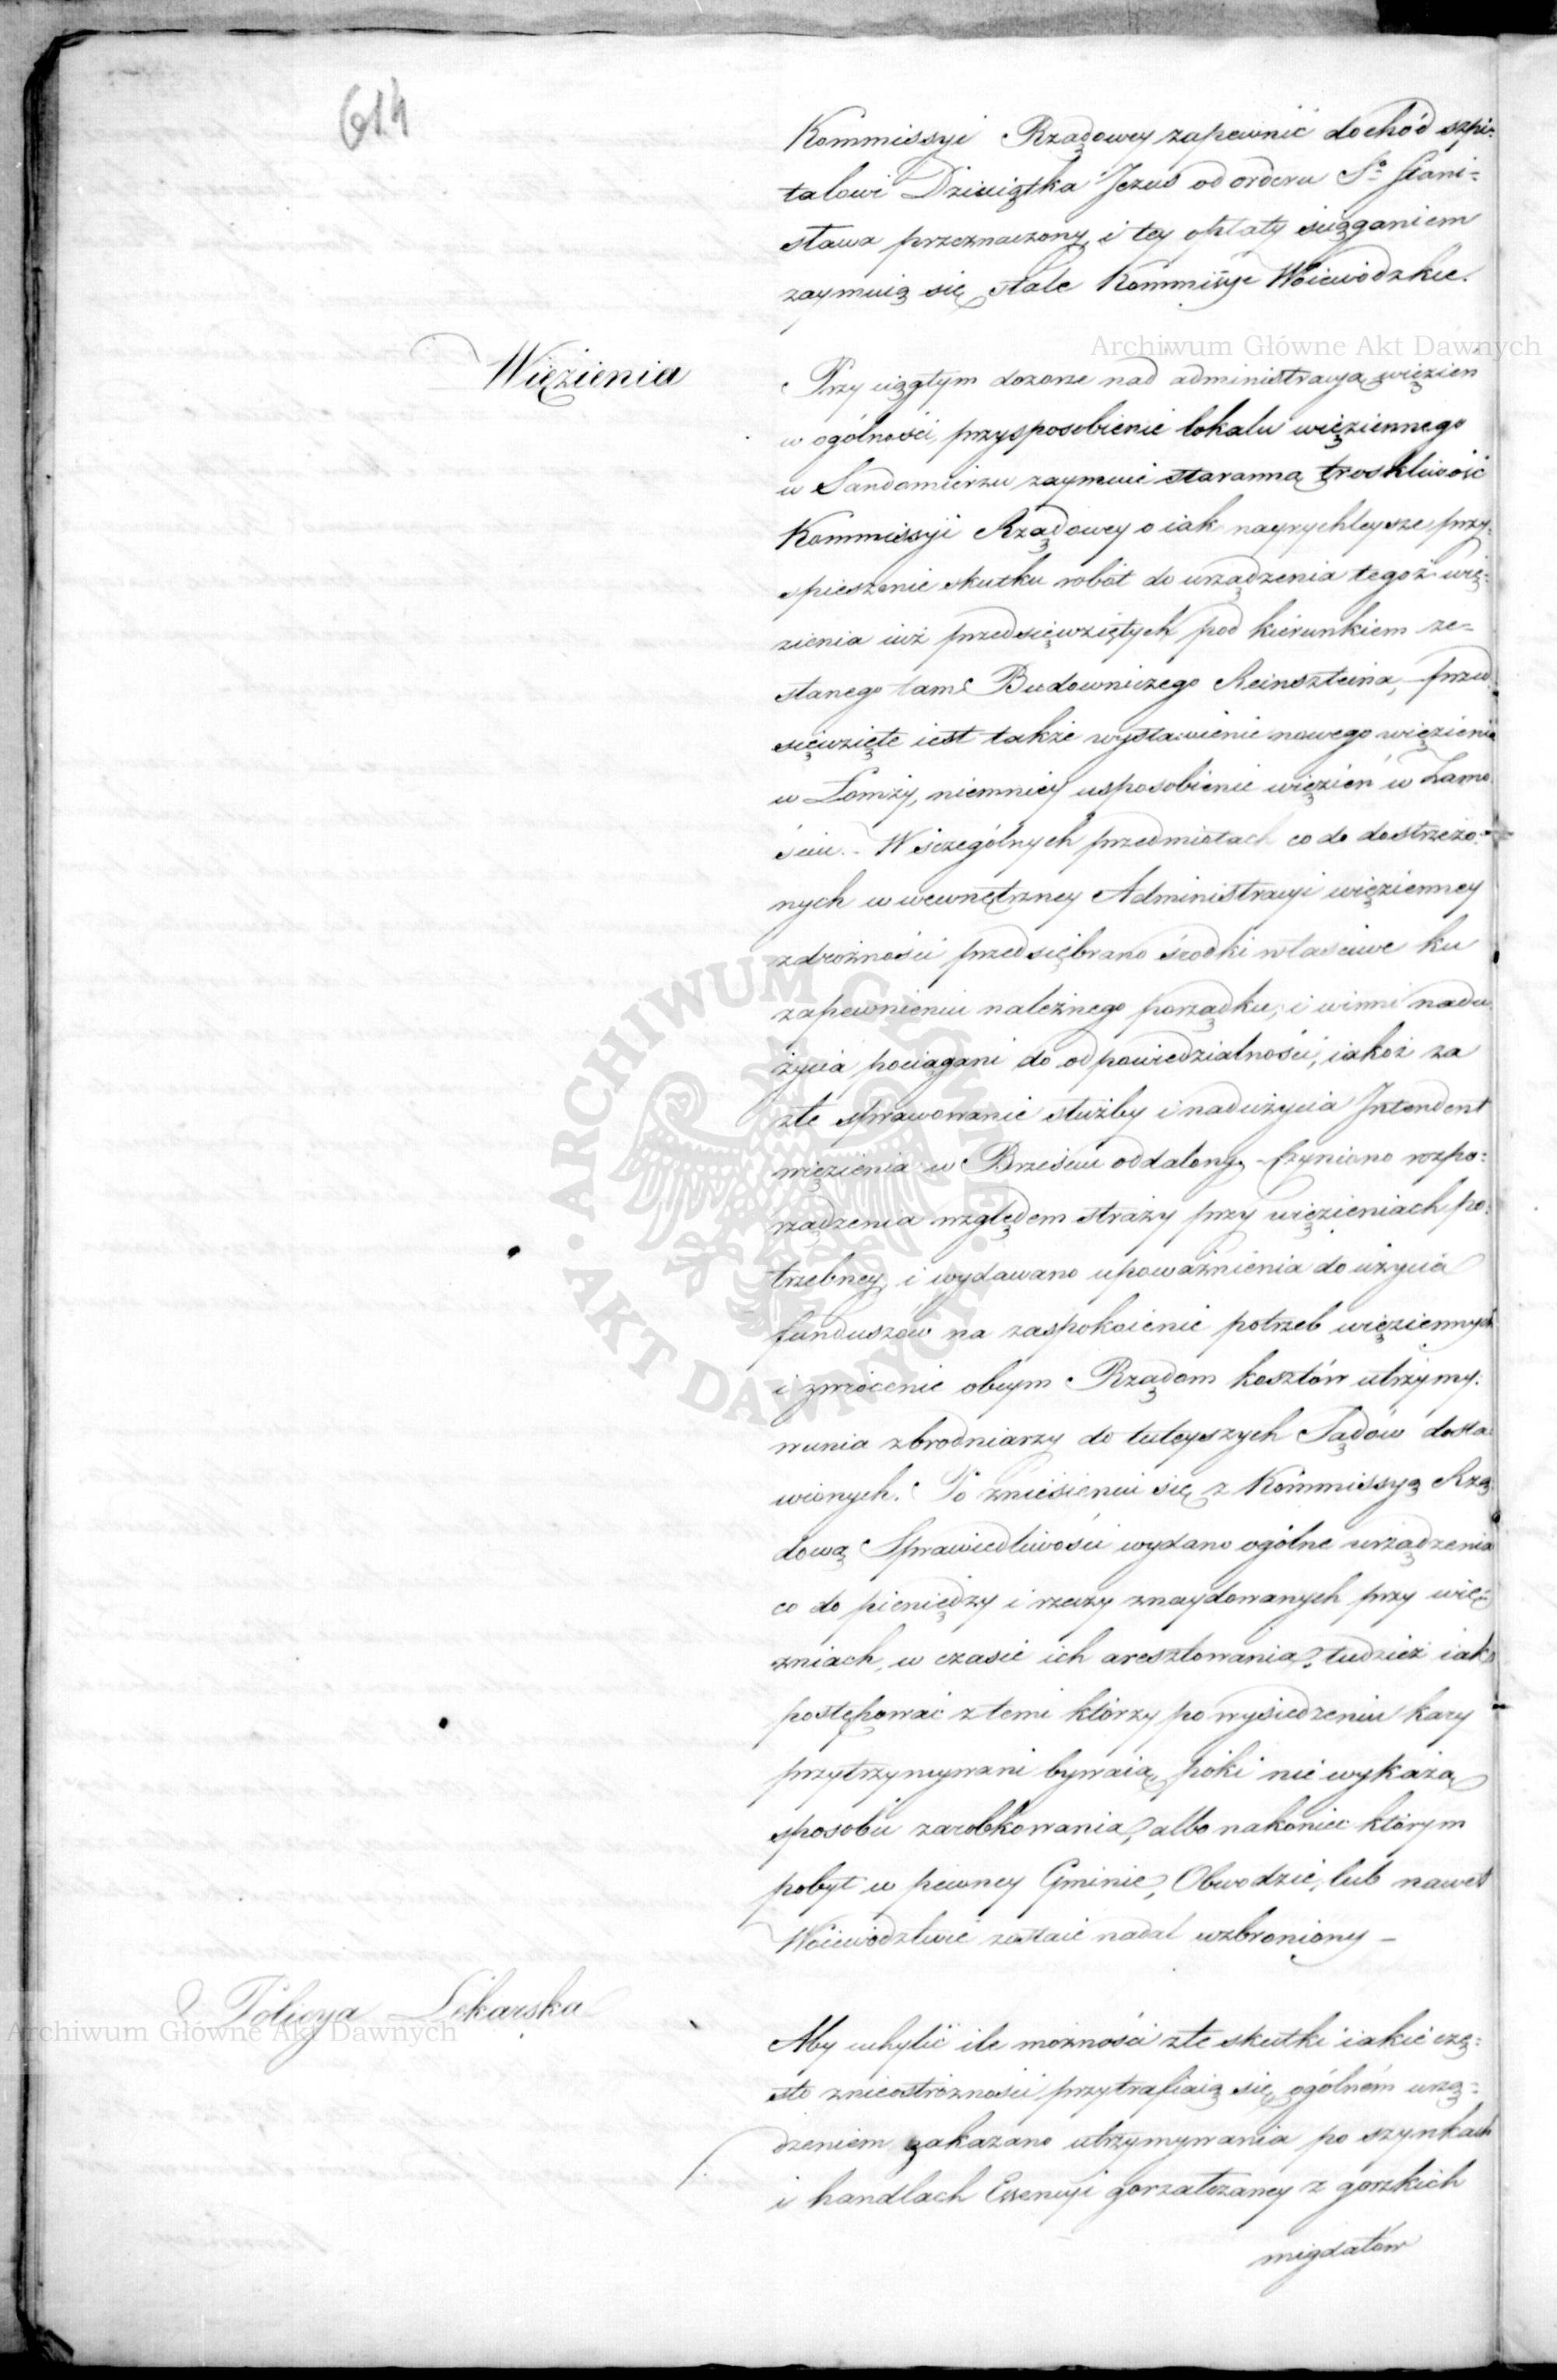 614
Kommissyi Rządowey zapewnić dochód szpi-
talowi Dzieiątka Jezus od orderu So Stani-
sława przeznaczony, i tey opłaty ściąganiem
zaymuią się stale Kommissye Woiewódzkie.
Więzienia
Przy ciągłym dozorze nad administracyą więzień
w ogólności, przysposobienie lokalu więziennego
w Sandomierzu zaymuie staranną troskliwość
Kommissyi Rządowey o iak nayrychleysze przy-
spieszenie skutku robót do urządzenia tegoż wię-
zienia iuż przedsięwziętych pod kierunkiem ze-
słanego tam Budowniczego Reinszteina, przed
sięwzięte iest także wystawienie nowego więzienia
w Łomży, niemniey usposobienie więzień w Zamo
ściu. W sczególnych przedmiotach co do dostrzeżo-
nych w wewnętrzney Administracyi więzienney
zdrożności przedsiębrano środki właściwe ku
zapewnieniu należnego porządku, i winni nadu
życia pociągani do odpowiedzialności, iakoż za
złe sprawowanie służby i nadużycia Intendent
więzienia w Brześciu oddalony. Czyniono rozpo-
rządzenia względem straży przy więzieniach po-
trzebney, i wydawano upoważnienia do użycia
funduszów na zaspokoienie potrzeb więziennych
i zwrócenie obcym Rządom kosztów utrzymy-
wania zbrodniarzy do tuteyszych Sądów dosta
wionych. Po zniesieniu się z Kommissyą Rzą
dową Sprawiedliwości wydano ogólne urządzenia
co do pieniędzy i rzeczy znaydowanych przy wię-
zniach, w czasie ich aresztowania, tudzież iak
postępować z temi którzy po wysiedzeniu kary
przytrzymywani bywaią, póki nie wykażą
sposobu zarobkowania, albo nakoniec którym
pobyt w pewney Gminie, Obwodzie, lub nawet
Woiewództwie zostaie nadal wzbroniony –
Policya Lekarska
Aby uchylić ile możności złe skutki iakie czę-
sto z nieostrożności przytrafiaią się, ogólnem urzą-
dzeniem zakazano utrzymywania po szynkach
i handlach Essencyi gorzałczaney z gorzkich
migdałów
Archiwum Główne Akt Dawnych
Archiwum Główne Akt Dawnych
ARCHIWUM GŁÓWNE AKT DAWNYCH